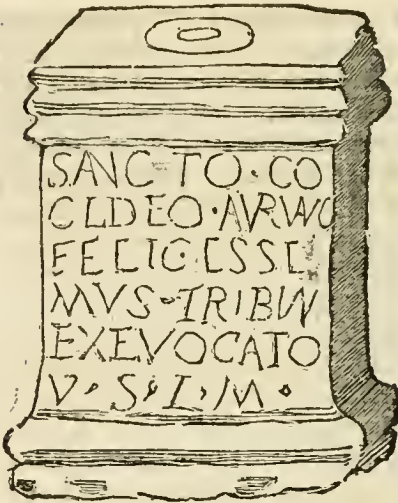 SANCTO·CO
CLDEO·AVRVNC
FELICESSE
MVS·TRIBVN
EXEVOCATO
V·S·L·M·